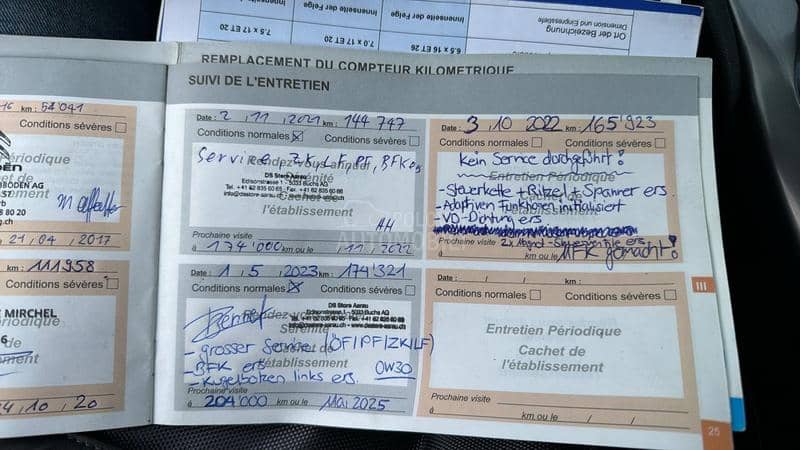 Ort der Bezeichnung
Dimension und Einpresstiefe
6.5 x 16 ET 26
Innenseite der Felge
7.0 x 17 ET 20
Innenseite der Felge
7.5 x 17 ET 20
REMPLACEMENT DU COMPTEUR KILOMETRIQUE
SUIVI DE L'ENTRETIEN
km : 54'041
Conditions sévères
Périodique
BÖDEN AG
21 / 04 / 2017
km : 111958
Conditions sévères
E MIRCHEL
Périodique
de
10 , 20
Date : 2 , 11 , 2021 km : 144'747
Conditions normales Conditions sévères
Service, ZK, LF, PF, BFK
DS Store Aarau
Edisonstrasse 1 - 5033 Buchs AG
l'établissement
AH
Prochaine visite
à 174'000 km ou le / 11 / 2022
Date : 3 , 10 2022 km : 165'923
Conditions normales Conditions sévères
Kein Service durchgeführt!
Entretien Périodique
- Steuerkette + Ritzel + Spanner ers.
- Adaptiven Funktionen initialisiert
- VD-Dichtung ers
Prochaine visite
km ou le MFK gemacht!
Date : 1 , 5 , 2023 km : 174'321
Conditions normales Conditions sévères
DS Store Aarau
Edisonstrasse 1 - 5033 Buchs AG
- grosser Service (ÖF/PF/ZK/LF)
- BFK ers
0W30
l'établissement
- Kugelbolzen links ers.
Prochaine visite
à 204'000 km ou le Mai 2025
Date : / / km :
Conditions normales Conditions sévères
Entretien Périodique
Cachet de
l'établissement
Prochaine visite
à km ou le / /
III
25